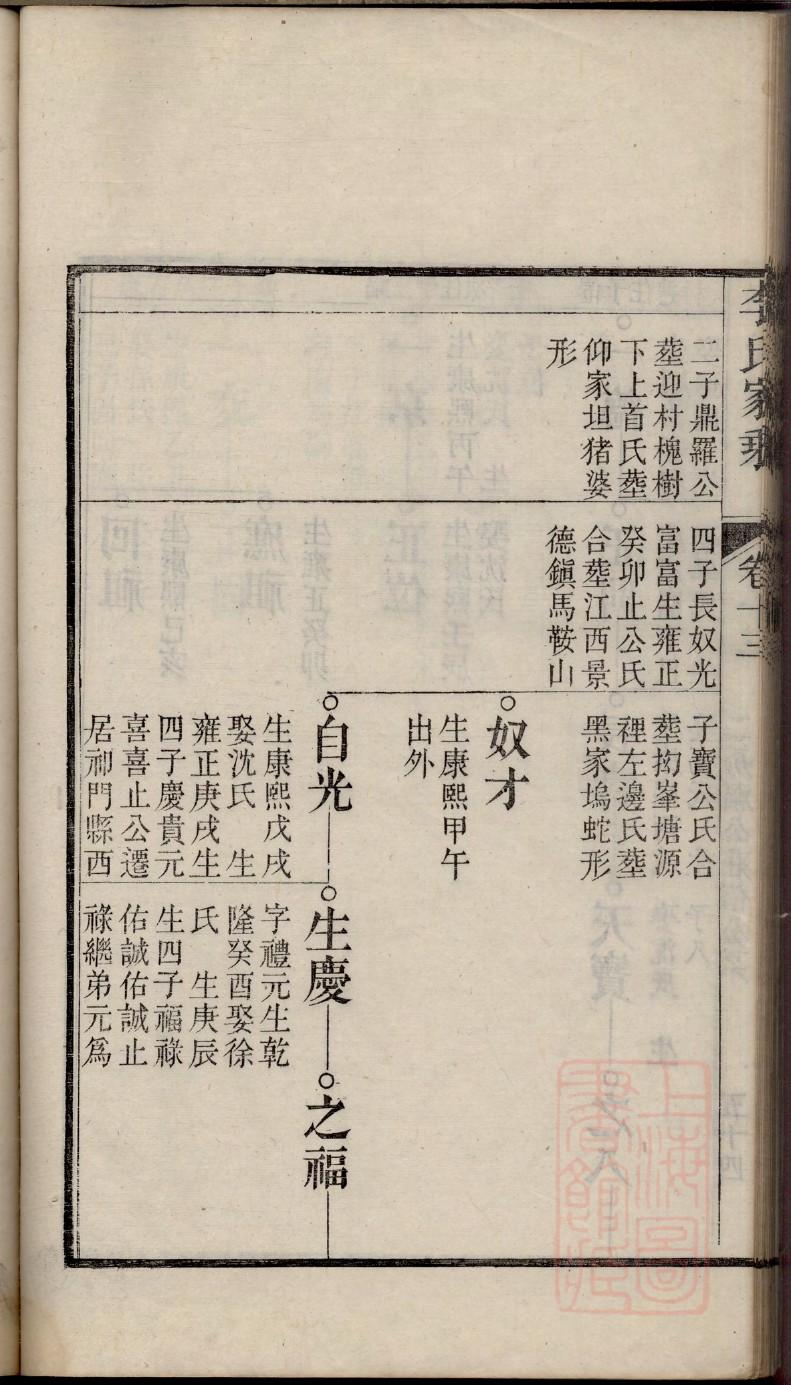 李氏家乘
卷十三
二子鼎羅公
塟迎村槐樹
下上首氏塟
仰家坦猪婆
形
四子長奴光
富富生雍正
癸卯止公氏
合塟江西景
德鎭馬鞍山
子寶公氏合
塟抝峯塘源
裡左邊氏塟
黑家塢蛇形
奴才
生康熙甲午
出外
自光
生康熙戊戌
娶沈氏 生
雍正庚戌生
四子慶貴元
喜喜止公遷
居祁門縣西
生慶
字禮元生乾
隆癸酉娶徐
氏 生庚辰
生四子福祿
佑誠佑誠止
祿繼弟元爲
之福
上海圖
書館藏